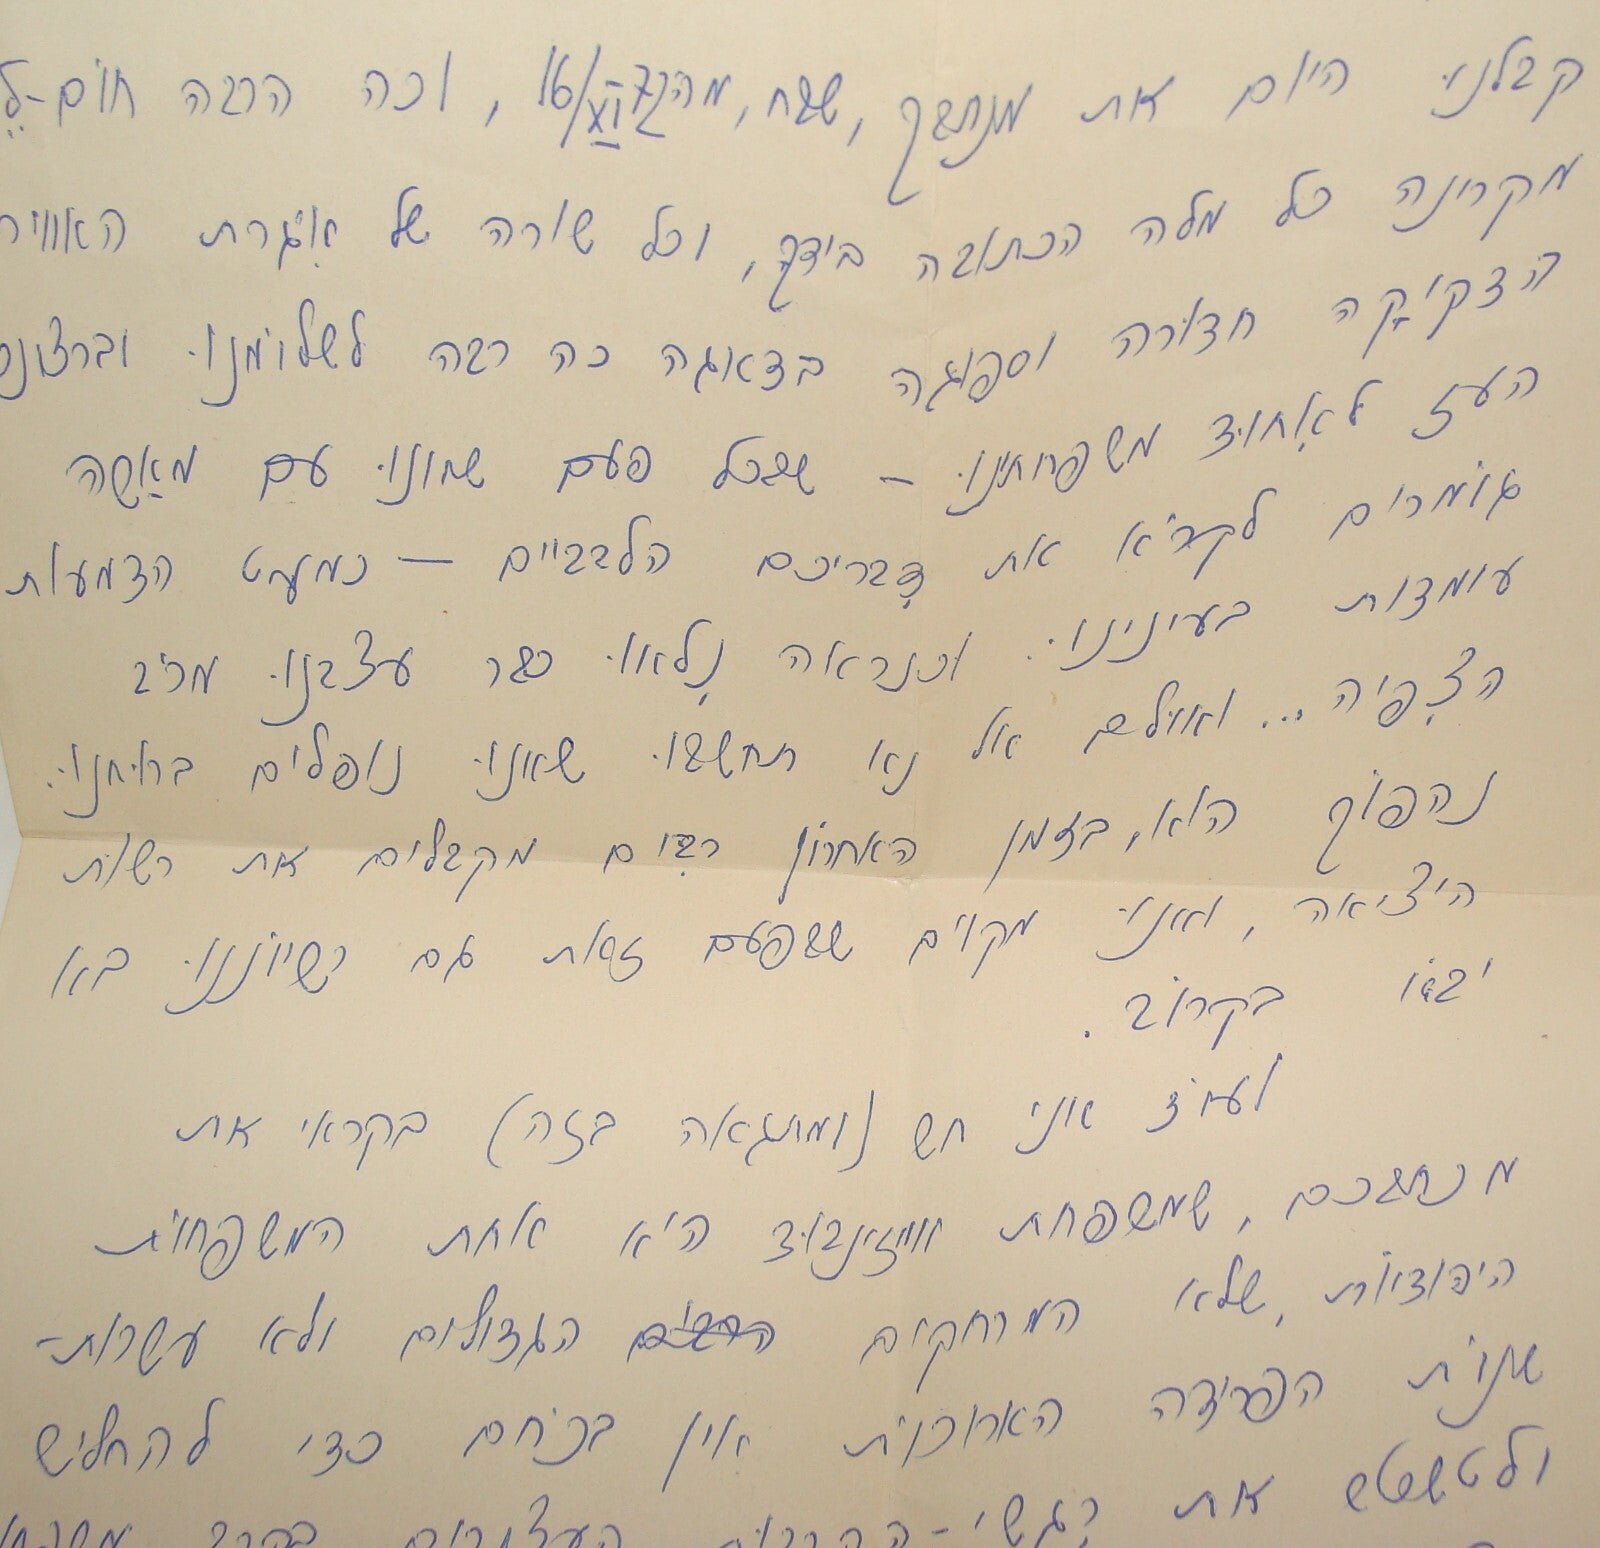 קבלנו היום את מכתבך, שבח, מה־16/, וכה הרבה חום-לֵ
מקרינה כל מלה הכתובה בידך, וכל שורה של אִגרת האוויר
הדקיקה חדורה וספוגה בדאוגה כה רבה לשלומנו וברצונכ
העז לאִחוד משפחתינו – שבכל פעם שאנו עם מאַשה
גומרים לקרֹא את דָבריכם הלבביים – כמעט הדמעות
עומדות בעינינו. וכנראה נִלאוּ כבר עצבנו מרֹב
הצִפיה... ואולם אל נא תחשבו שאנו נופלים ברוחנו.
נהפוֹך הוא, בזמן האחרון רבִּים מקבלים את רשות
היציאה, ואנו מקוים שבפעם זאת גם רשיוננו בא
יבוא בקרוֹב.
ועוֹד אני חש (ומתגאה בזה) בקראי את
מכתבכם, שמשפחת ווייזנבוד היא אחת המשפחות
היהודיוֹת, שלא המרחקים הגדולים ולא עשרות-
שנוֹת הפרידה הארוכוֹת אין בכֹחם כדי להחליש
ולטשטש את רִגשי-